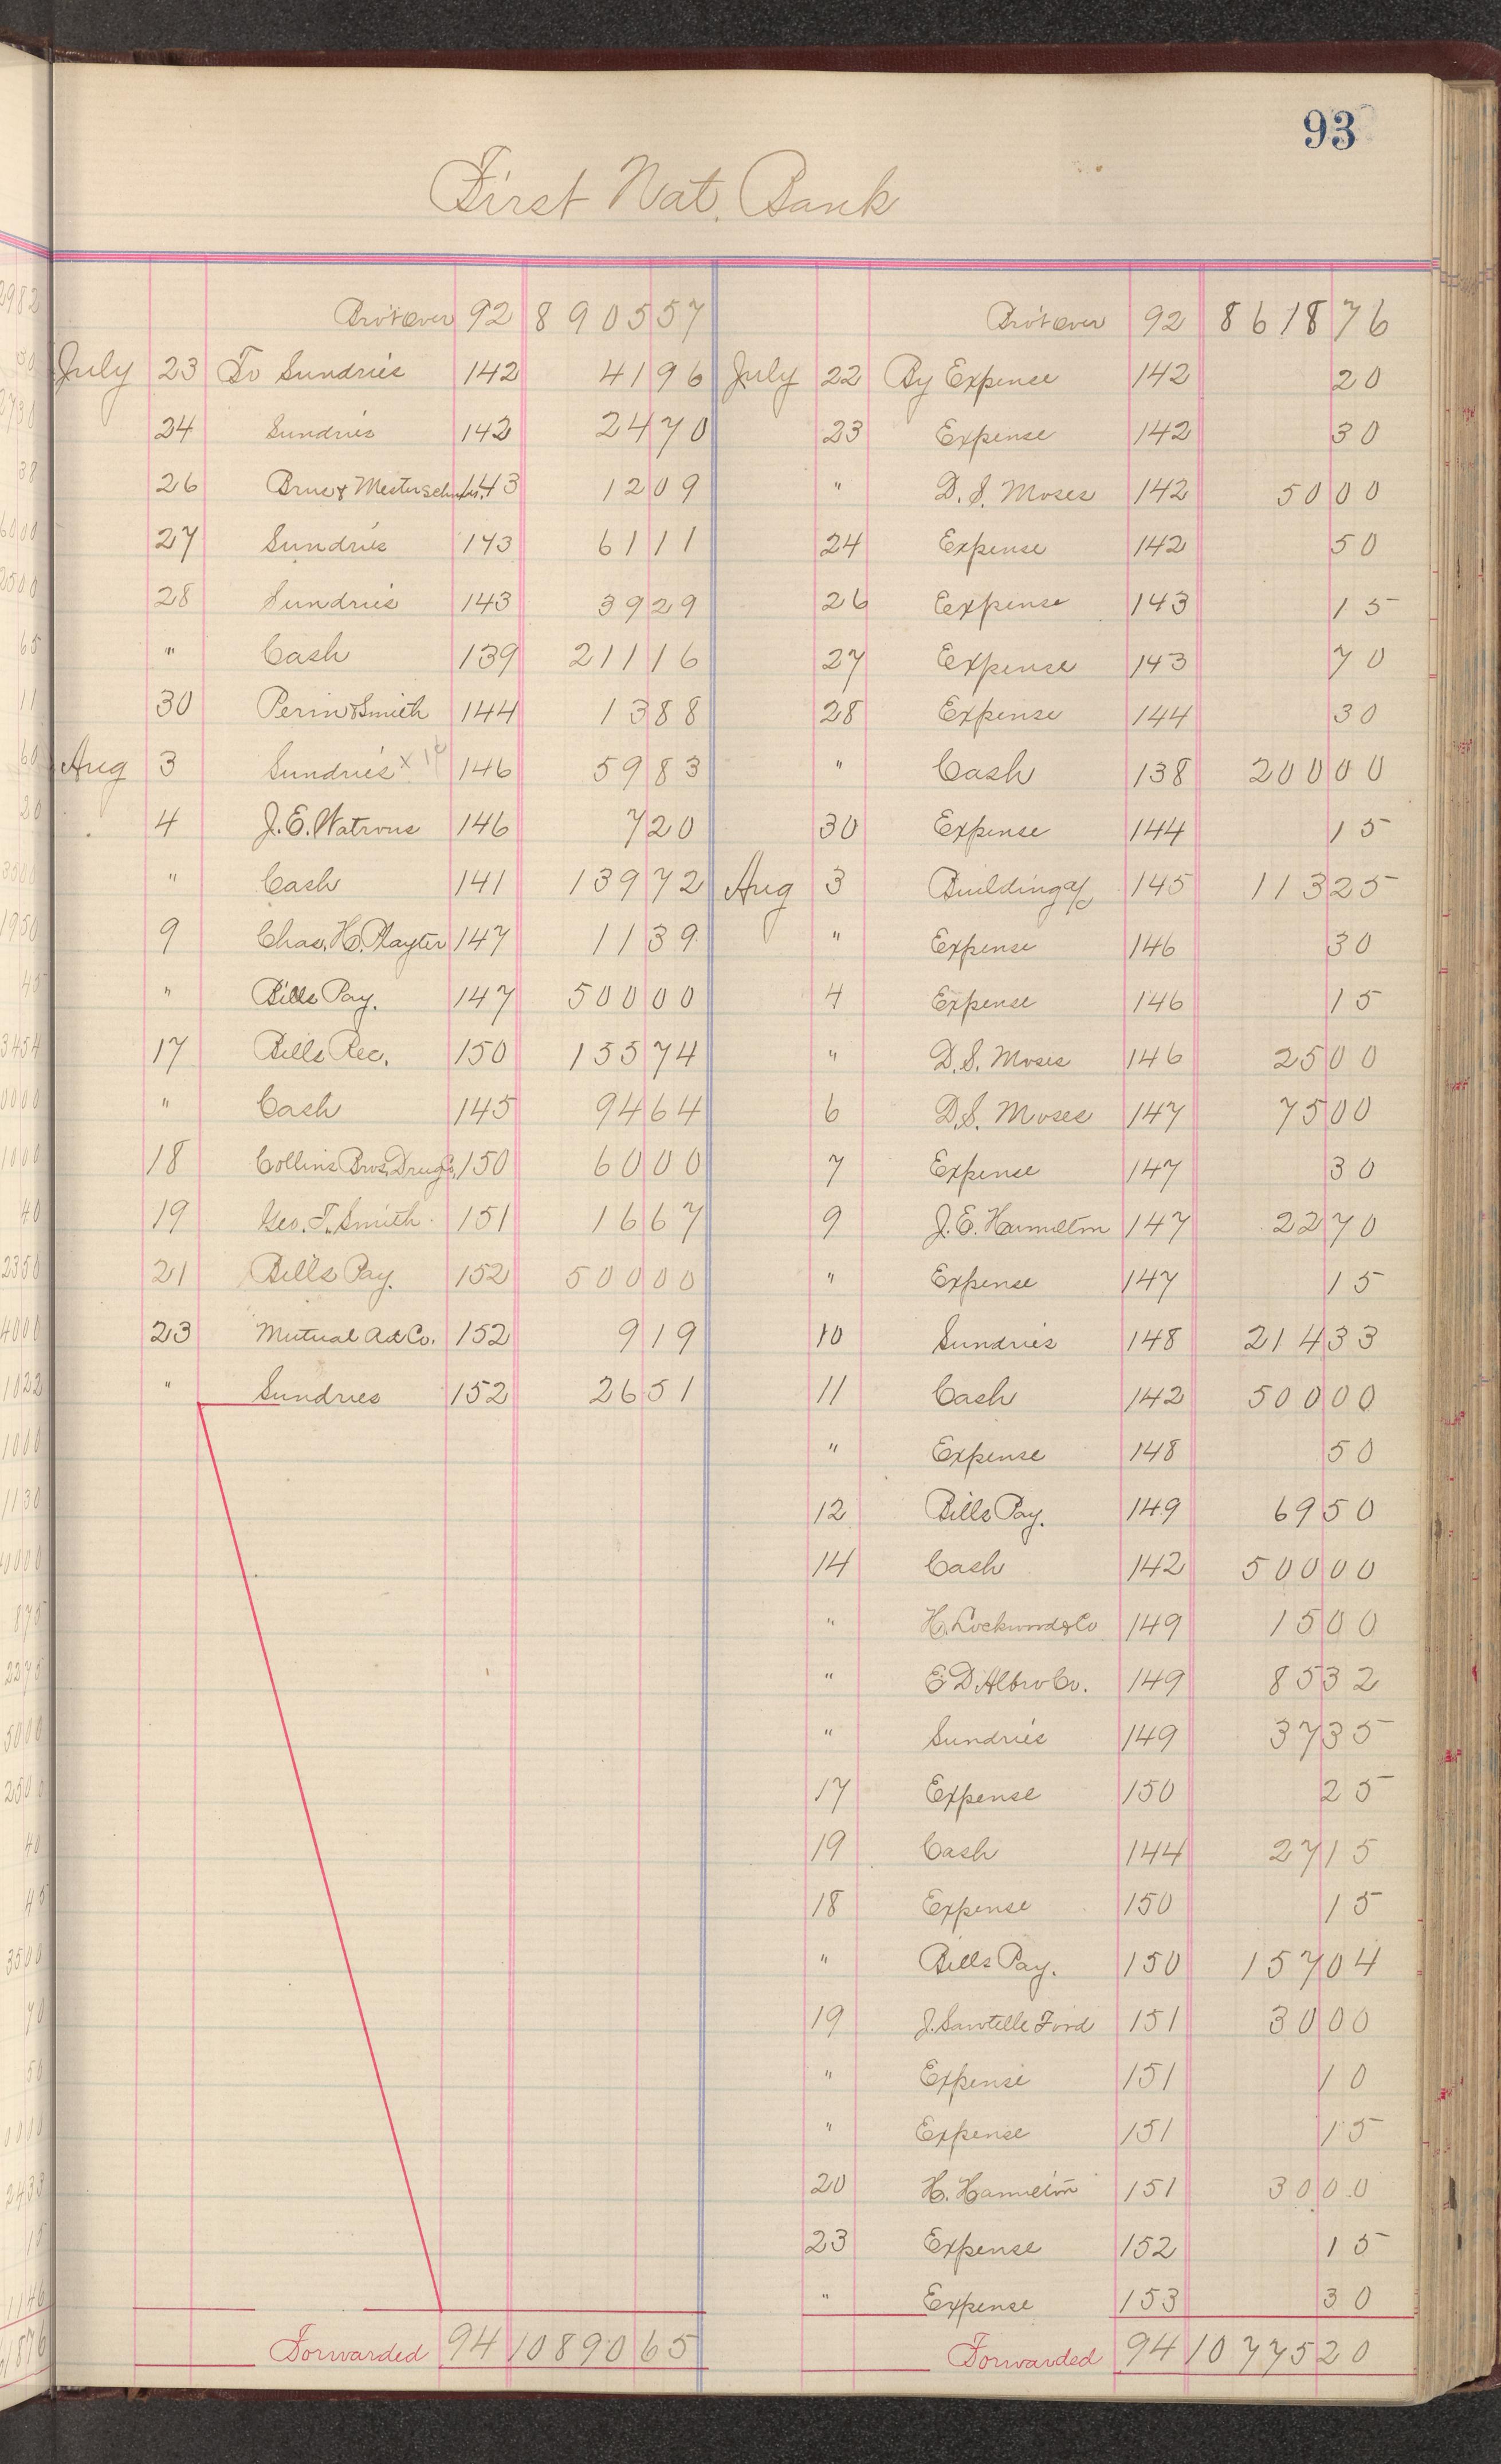 93
First Nat. Bank
Bro't over 92 8905 57
July 23 To Sundries 142 41 96
24 Sundries 142 24 70
26 143 12 09
27 Sundries 143 61 11
28 Sundries 143 39 29
" Cash 139 211 16
30 Perin & Smith 144 13 88
Aug 3 Sundries 146 59 83
4 J. E. Watrous 146 7 20
" Cash 141 139 72
9 Chas. H. Playter 147 11 39
" Bills Pay. 147 500 00
17 Bills Rec. 150 155 74
" Cash 145 94 64
18 Collins Bros. Drug Co. 150 60 00
19 Geo. T. Smith 151 16 67
21 Bills Pay. 152 500 00
23 Mutual Ad Co. 152 9 19
" Sundries 152 26 51
Forwarded 94 10890 65
Bro't over 92 8618 76
July 22 By Expense 142 20
23 Expense 142 30
" D. S. Moses 142 50 00
24 Expense 142 50
26 Expense 143 15
27 Expense 143 70
28 Expense 144 30
" Cash 138 200 00
30 Expense 144 15
Aug 3 Building a/c 145 113 25
" Expense 146 30
4 Expense 146 15
" D. S. Moses 146 25 00
6 D. S. Moses 147 75 00
7 Expense 147 30
9 J. E. Hamilton 147 22 70
" Expense 147 15
10 Sundries 148 214 33
11 Cash 142 500 00
" Expense 148 50
12 Bills Pay. 149 69 50
14 Cash 142 500 00
" H. Lockwood & Co 149 15 00
" E. D. Albro Co. 149 85 32
" Sundries 149 37 35
17 Expense 150 25
19 Cash 144 27 15
18 Expense 150 15
" Bills Pay. 150 157 04
19 J. Sawtelle Ford 151 30 00
" Expense 151 10
" Expense 151 15
20 H. Hamilton 151 30 00
23 Expense 152 15
" Expense 153 30
Forwarded 94 10775 20